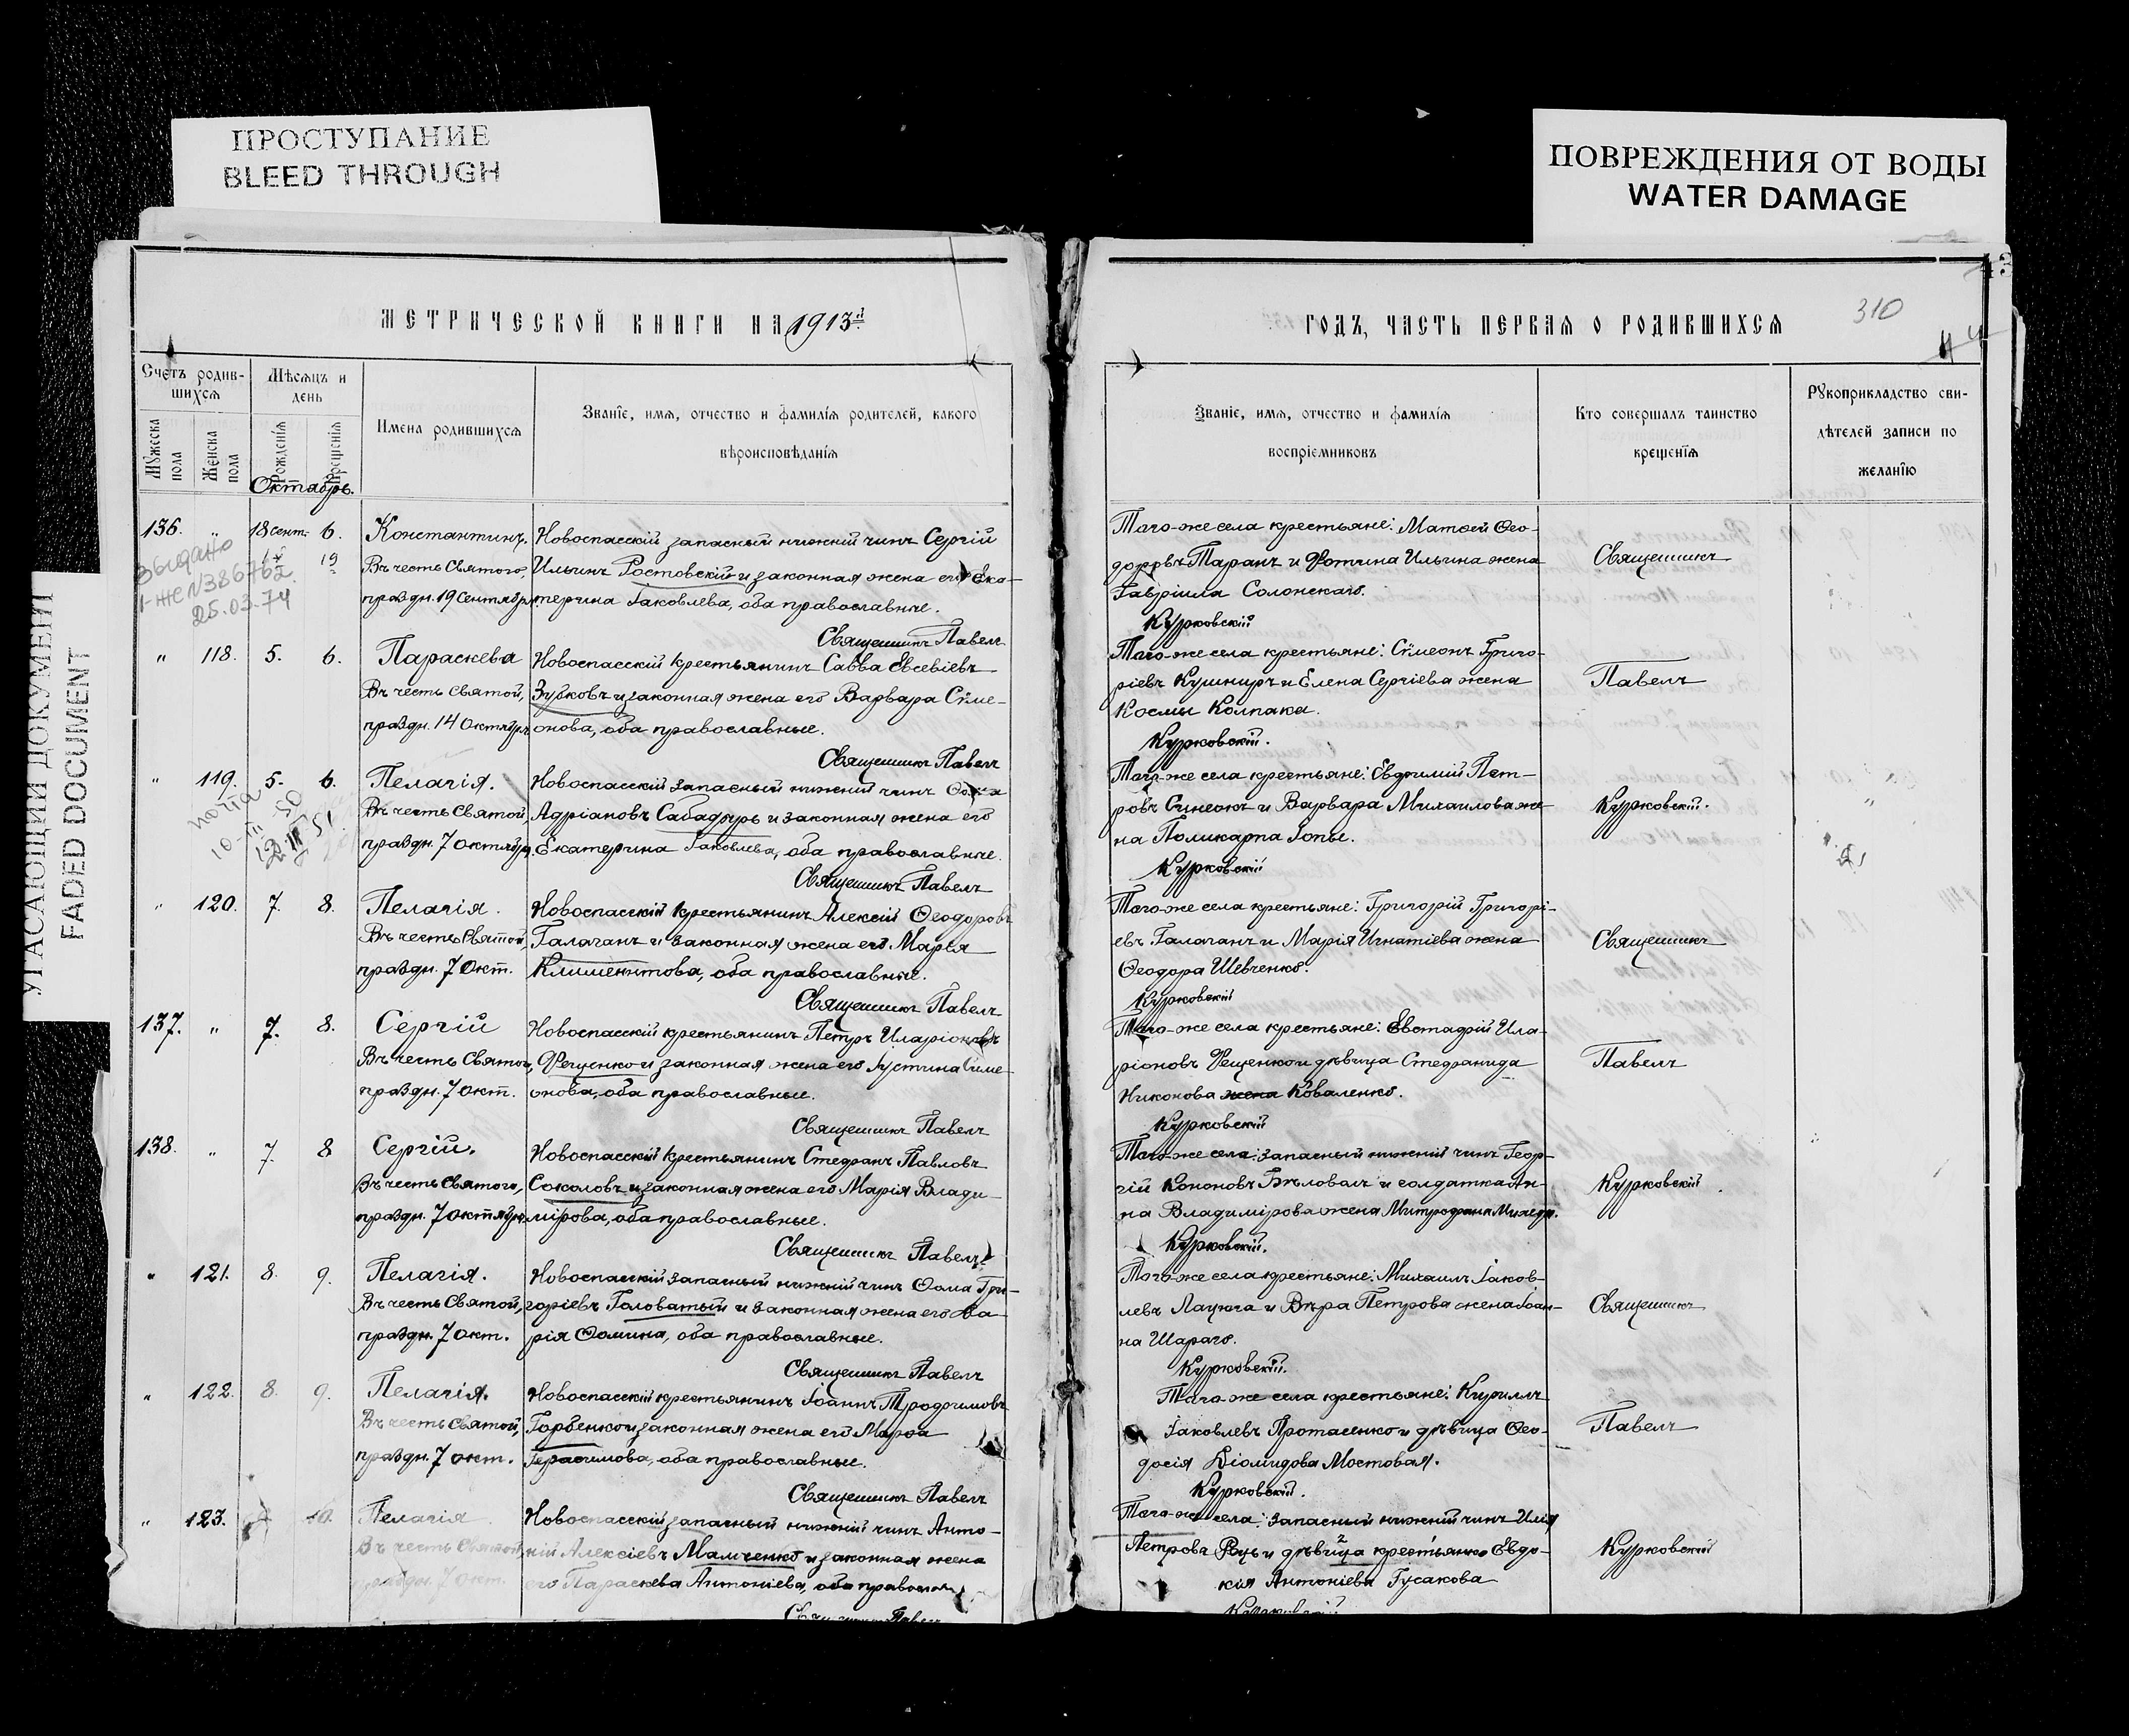 ПРОСТУПАНИЕ
BLEED THROUGH
ПОВРЕЖДЕНИЯ ОТ ВОДЫ
WATER DAMAGE
УГАСАЮЩИЙ ДОКУМЕНТ
FADED DOCUMENT
МЕТРИЧЕСКОЙ КНИГИ НА 1913й
Счетъ родив-
шихся
Мѣсяцъ и
день
Мужеска пола
Женска пола
Рожденія
Крещенія
Имена родившихся
Званіе, имя, отчество и фамилія родителей, какого
вѣроисповѣданія
Октябрь.
136. " 18 сент. 6. Константинъ. Новоспасскій запасный нижній чинъ Сергій
Въ честь Святого, Ильинъ Ростовскій и законная жена его Ека-
праздн. 19 Сентября терина Іаковлева, оба православные.
выдано
І-ЖС №386762
25.03.74
19
Священникъ Павелъ
" 118. 5. 6. Параскева Новоспасскій крестьянинъ Савва Евсевіевъ
Въ честь Святой, Зубковъ и законная жена его Варвара Сѵме-
праздн. 14 Октября онова, оба православные.
Священникъ Павелъ
" 119. 5. 6. Пелагія. Новоспасскій запасный нижній чинъ
Въ честь Святой, Адріановъ Сабадырь и законная жена его
праздн. 7 октября. Екатерина Іаковлева, оба православные.
10-III-50
Священникъ Павелъ
" 120. 7. 8. Пелагія. Новоспасскій крестьянинъ Алексій Ѳеодоровъ
Въ честь Святой, Галаганъ и законная жена его Марѳа
праздн. 7 Окт. Климентова, оба православные.
Священникъ Павелъ
137. " 7. 8. Сергій Новоспасскій крестьянинъ Петръ Иларіоновъ
Въ честь Святого, Фещенко и законная жена его Іустина Сѵме-
праздн. 7 окт. онова, оба православные.
Священникъ Павелъ
138. " 7. 8 Сергій. Новоспасскій крестьянинъ Стефанъ Павловъ
Въ честь Святого, Соколовъ и законная жена его Марія Влади-
праздн. 7 октября. мірова, оба православные.
Священникъ Павелъ
" 121. 8. 9. Пелагія. Новоспасскій запасный нижній чинъ Ѳома Гри-
Въ честь Святой, горіевъ Головатый и законная жена его Ма-
праздн. 7 окт. рія Ѳомина, оба православные.
Священникъ Павелъ
" 122. 8. 9. Пелагія. Новоспасскій крестьянинъ Іоаннъ Трофимовъ
Въ честь Святой, Горбенко и законная жена его Марѳа
праздн. 7 окт. Герасимова, оба православные.
Священникъ Павелъ
" 123. 10. Пелагія. Новоспасскій запасный нижній чинъ Анто-
Въ честь Святой, ній Алексіевъ Мамченко и законная жена
праздн. 7 окт. его Параскева Антоніева, оба православ
Священникъ Павелъ
ГОДЪ, ЧАСТЬ ПЕРВАЯ О РОДИВШИХСЯ
310
Званіе, имя, отчество и фамилія
воспріемниковъ
Кто совершалъ таинство
крещенія
Рукоприкладство сви-
дѣтелей записи по
желанію
Того-же села крестьяне: Матѳей Ѳео-
доровъ Таранъ и Фотина Ильина жена Священникъ
Гавріила Солонскаго.
Курковскій
Того-же села крестьяне: Сѵмеонъ Григо-
ріевъ Кушниръ и Елена Сергіева жена Павелъ
Космы Колпака.
Курковскій.
Того-же села крестьяне: Евѳимій Пет-
ровъ Синеокъ и Варвара Михаилова же- Курковскій.
на Поликарпа Іопы.
Курковскій
Того-же села крестьяне: Григорій Григорі-
евъ Галаганъ и Марія Игнатіева жена Священникъ
Ѳеодора Шевченко.
Курковскій
Того-же села крестьяне: Евстафій Ила-
ріоновъ Фещенко и дѣвица Стефанида Павелъ
Никонова жена Коваленко.
Курковскій
Того-же села: запасный нижній чинъ Геор-
гій Кононовъ Бѣловалъ и солдатка Ан- Курковскій
на Владимірова жена Митрофана
Курковскій.
Того-же села крестьяне: Михаилъ Іаков-
левъ Лацюга и Вѣра Петрова жена Іоан- Священникъ
на Шараго.
Курковскій.
Того-же села крестьяне: Кириллъ
Іаковлевъ Протасенко и дѣвица Ѳео- Павелъ
досія Діомидова Мостовая.
Курковскій.
Того-же села: запасный нижній чинъ Илія
Петровъ Рець и дѣвица крестьянка Евдо- Курковскій
кія Антоніева Гусакова
Курковскій